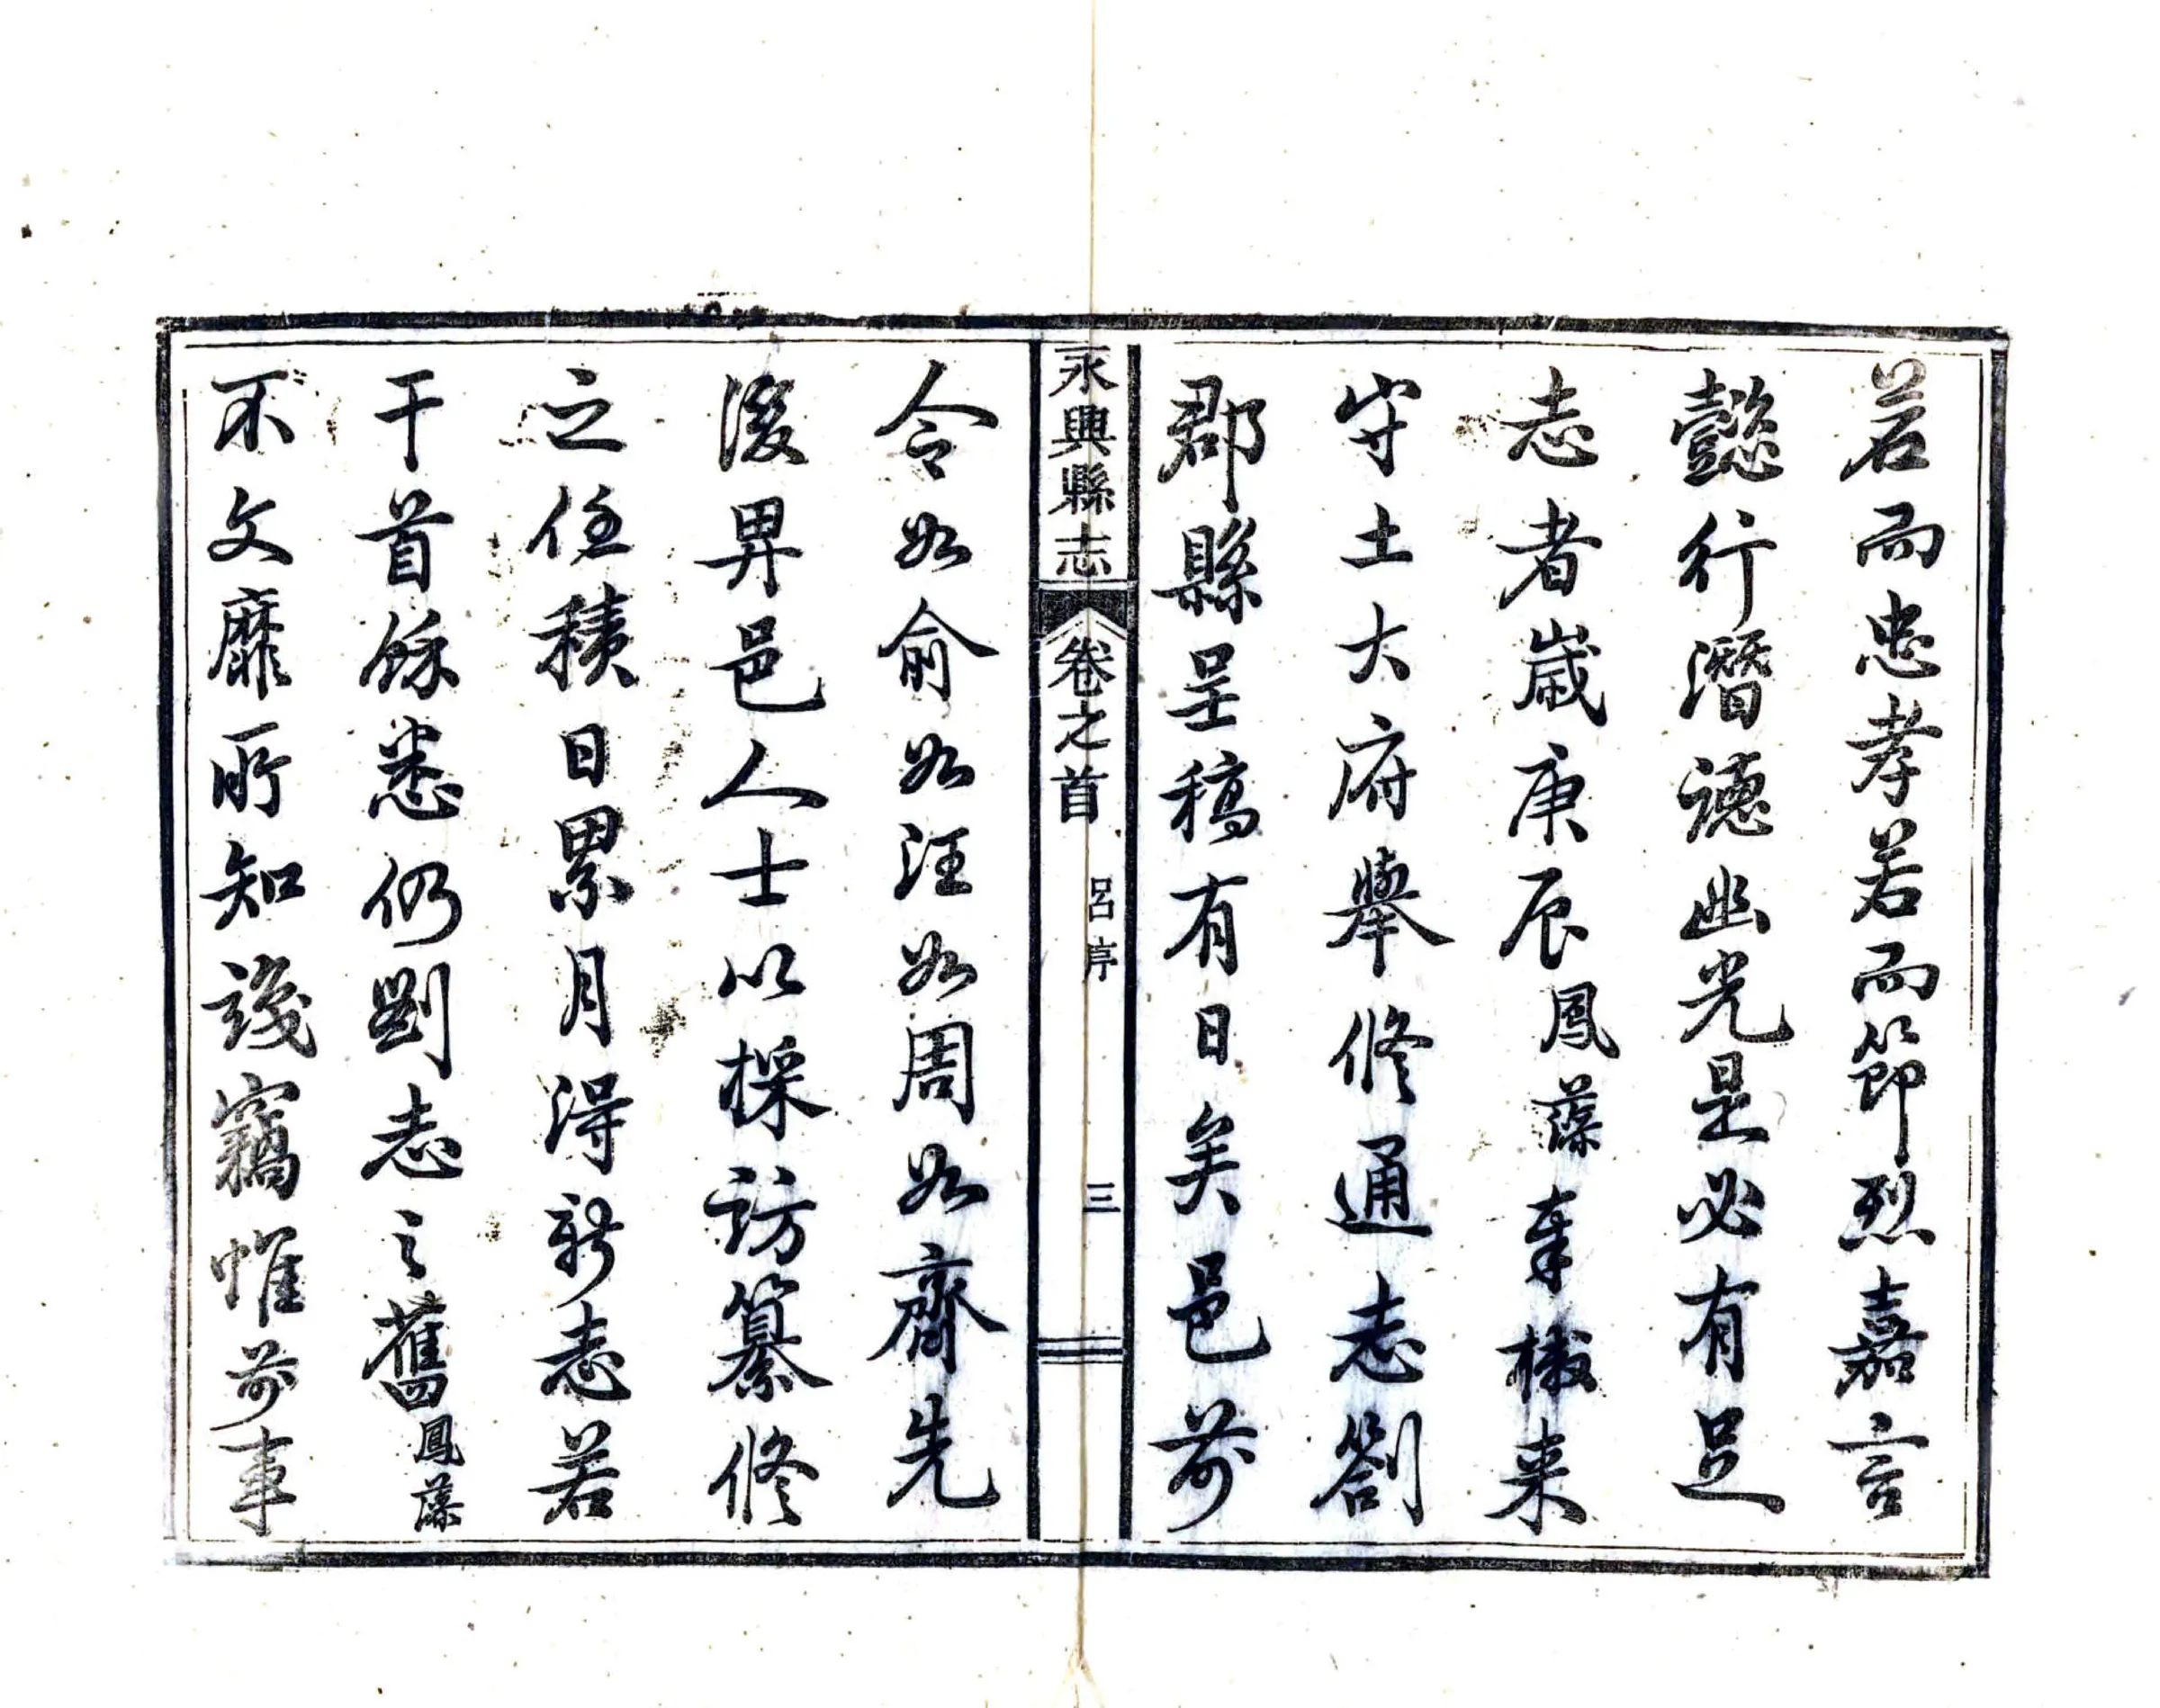 若而忠孝若而節烈嘉言
懿行潛德幽光是必有足
志者歲庚辰鳳藻奉檄来
守土大府舉修通志劄
郡縣呈稿有日矣邑前
永興縣志
卷之首
呂序
三
令如俞如汪如周如齊先
後畀邑人士以採訪纂修
之任積日累月得新志若
干首餘悉仍劉志之舊鳳藻
不文靡所知識竊惟前事